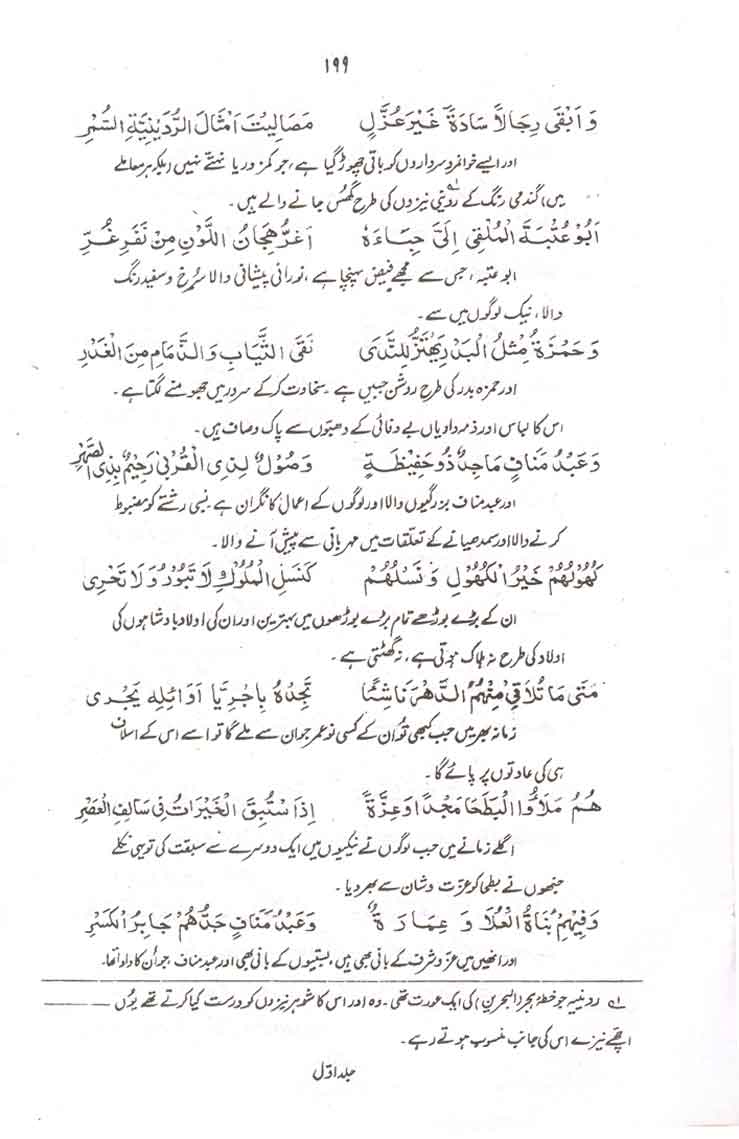 ۱۹۹
وَ اَبْقَى رِجَالًا سَادَةً غَيْرَ عُزَّلٍ مَصَالِيْتَ اَمْثَالَ الرُّدَيْنِيَّةِ السُّمْرِ
اور ایسے جوانمرد سرداروں کو باقی چھوڑ گیا ہے، جو کمزور یا نہتے نہیں (بلکہ ہر معاملے
میں) گندمی رنگ کے رُدینی نیزوں کی طرح گھُس جانے والے ہیں۔
اَبُوْ عُتْبَةَ الْمُلْقِى اِلَىَّ حِبَاءَهٗ اَغَرُّ هِجَانُ اللَّوْنِ مِنْ نَفَرٍ غُرِّ
ابو عتبہ، جس سے مجھے فیض پہنچا ہے، نورانی پیشانی والا سُرخ و سفید رنگ
والا، نیک لوگوں میں سے۔
وَ حَمْزَةُ مِثْلُ الْبَدْرِ يَهْتَزُّ لِلنَّدَى نَقَى الثِّيَابِ وَالذِّمَامِ مِنَ الْغَدْرِ
اور حمزہ بدر کی طرح روشن جبیں ہے۔ سخاوت کرکے سرور میں جھومنے لگتا ہے۔
اس کا لباس اور ذمہ داریاں بے وفائی کے دھبّوں سے پاک و صاف ہیں۔
وَ عَبْدُ مَنَافٍ مَاجِدٌ ذُوْ حَفِيْظَةٍ وَصُوْلٌ لِذِى الْقُرْبٰى رَحِيْمٌ بِذِى الصِّهْرِ
اور عبد مناف بزرگیوں والا اور لوگوں کے اعمال کا نگران ہے۔ نسبی رشتے کو مضبوط
کرنے والا اور سمدھیانے کے تعلقات میں مہربانی سے پیش آنے والا۔
كُهُوْلُهُمْ خَيْرُ الْكُهُوْلِ وَ نَسْلُهُمْ كَنَسْلِ الْمُلُوْكِ لَا تَبُوْرُ وَلَا تَحْرِى
ان کے بڑے بوڑھے تمام بڑے بوڑھوں میں بہترین اور ان کی اولاد بادشاہوں کی
اولاد کی طرح نہ ہلاک ہوتی ہے، نہ گھٹتی ہے۔
مَتٰى مَا تُلَاقِىْ مِنْهُمُ الدَّهْرَ نَاشِئًا تَجِدْهُ بِاِجْرِيَّا اَوَائِلِهٖ يَجْرِى
زمانہ بھر میں جب کبھی تو اُن کے کسی نو عمر جوان سے ملے گا تو اسے اس کے اسلاف
ہی کی عادتوں پر پائے گا۔
هُمُ مَلَاُوا الْبَطْحَا مَجْدًا وَ عِزَّةً اِذَا سْتُبِقَ الْخَيْرَاتُ فِى سَالِفِ الْعَصْرِ
اگلے زمانے میں جب لوگوں نے نیکیوں میں ایک دوسرے سے سبقت کی تو یہی نکلے
جنھوں نے بطحا کو عزت و شان سے بھر دیا۔
وَ فِيْهِمْ بُنَاةُ الْعُلَا وَ عِمَارَةٌ وَعَبْدُ مَنَافٍ جَدُّهُمْ جَابِرُ الْكَسْرِ
اور انھیں میں عز و شرف کے بانی بھی ہیں، بستیوں کے بانی بھی اور عبد مناف، جو اُن کا دادا تھا۔
لہ ردینیہ جو خطۂ ہجر (البحرین) کی ایک عورت تھی۔ وہ اور اس کا شوہر نیزوں کو درست کیا کرتے تھے یوں
اچھے نیزے اس کی جانب منسوب ہوتے رہے۔
جلد اوّل